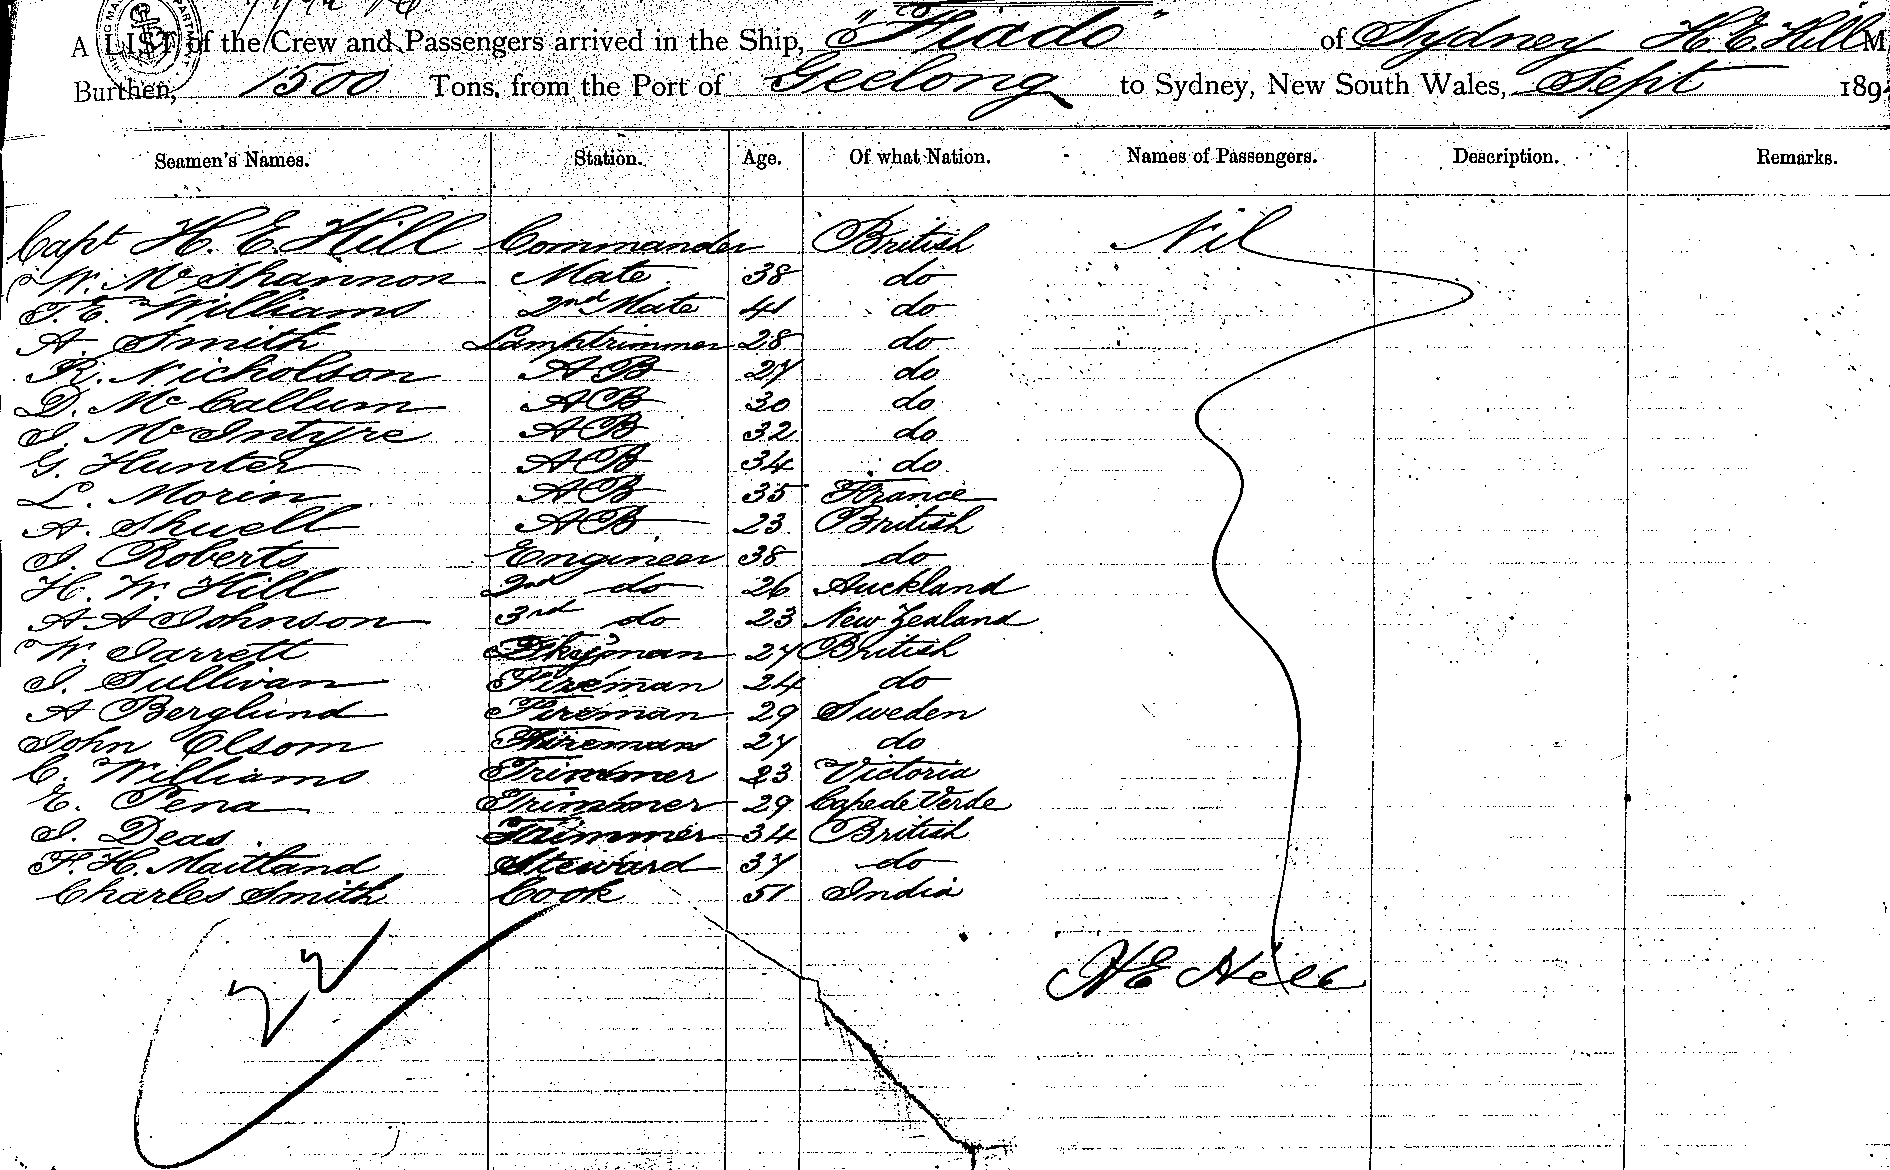 A LIST of the Crew and Passengers arrived in the Ship, "Fiado" of Sydney H.E. Hill M
Burthen, 1500 Tons, from the Port of Geelong to Sydney, New South Wales, Sept 189
Seamen's Names. Station. Age. Of what Nation. Names of Passengers. Description. Remarks.
Capt H. E. Hill Commander British Nil
W. McShannon Mate 38 do
T. E. Williams 2nd Mate 41 do
A. Smith Lamptrimmer 28 do
R. Nicholson AB 27 do
D. McCallum AB 30 do
J. McIntyre AB 32 do
G. Hunter AB 34 do
L. Morin AB 35 France
A. Shuell AB 23 British
J. Roberts Engineer 38 do
H. W. Hill 2nd do 26 Auckland
A A Johnson 3rd do 23 New Zealand
W. Jarrett 27 British
J. Sullivan Fireman 24 do
A Berglund Fireman 29 Sweden
John Olsom Fireman 27 do
C. Williams Trimmer 23 Victoria
E. Pena Trimmer 29 Cape de Verde
J. Deas Trimmer 34 British
F. H. Maitland Steward 37 do
Charles Smith Cook 51 India
H E Hill
22